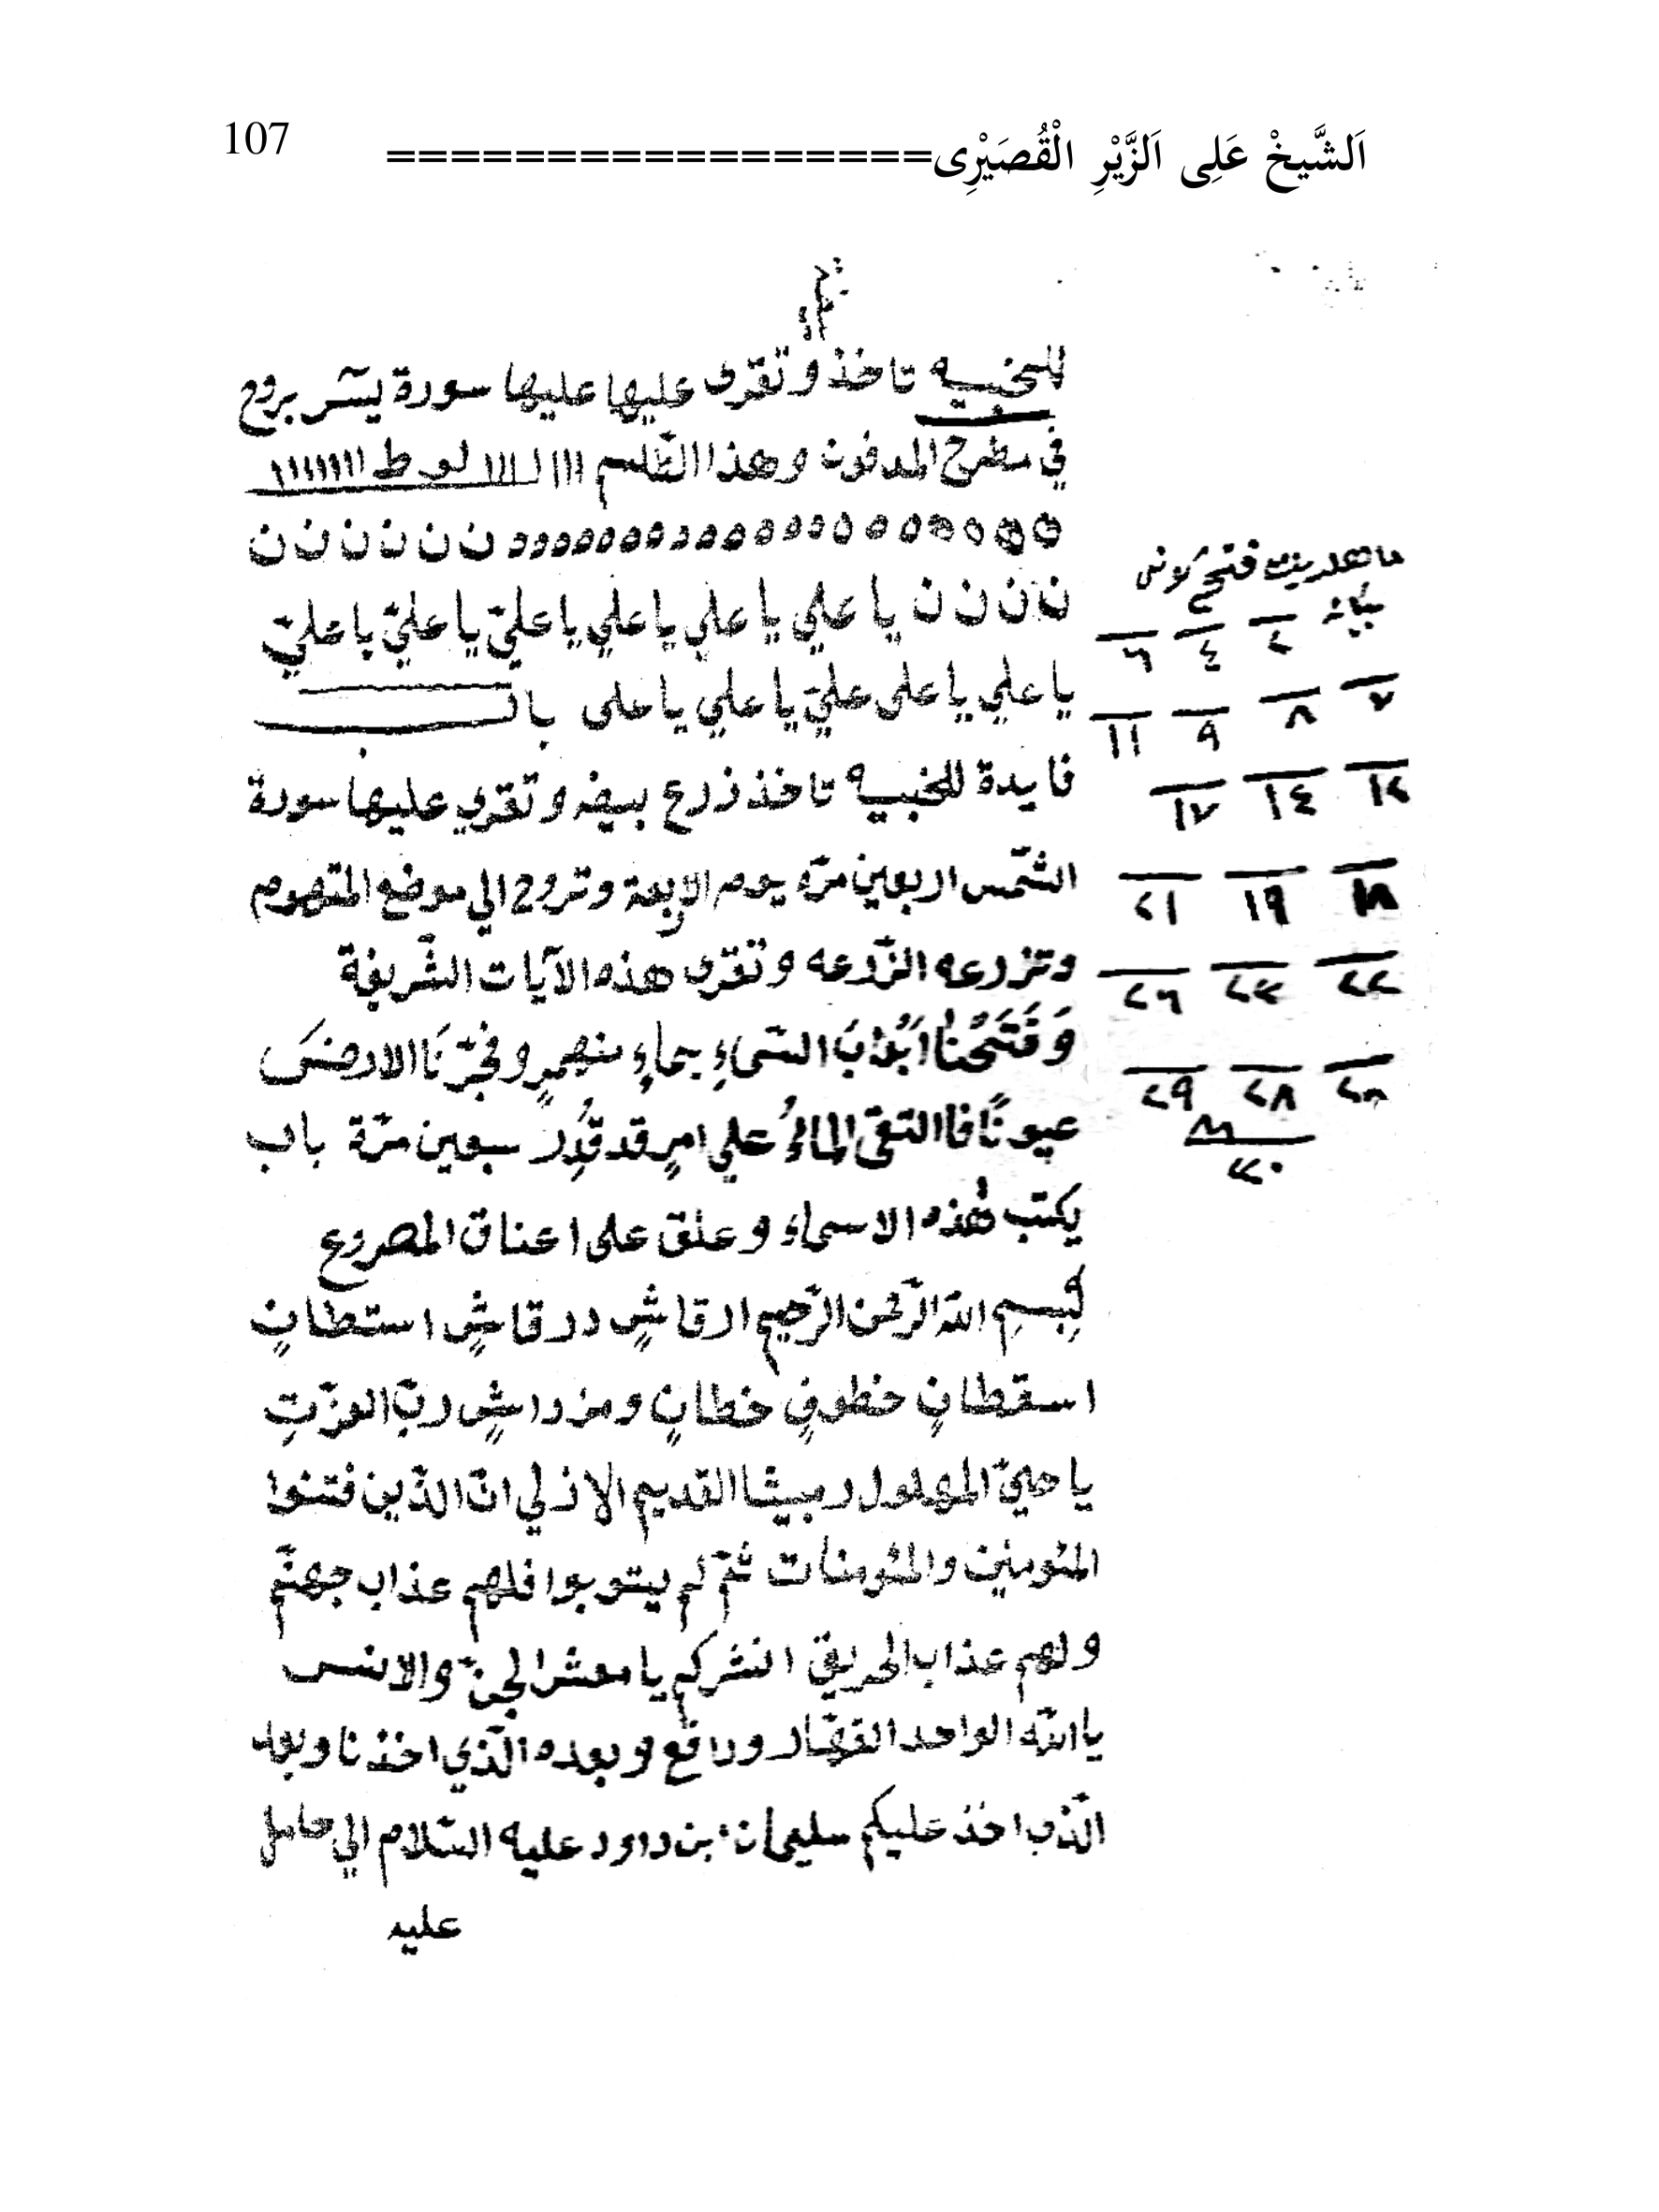 اَلشَّيخْ عَلِى اَلزَّيْرِ الْقُصَيْرِى================= 107
للخبيه تاخذ وتقرى عليها عليها سورة يسَٓ بروح
في مطرح المدفون وهذا الطّلسم ااا لـ ااا لو ط ااااااا
ن ن ن ن ن ن
ن ن ن ن يا علي يا علي يا علي يا عليّ يا عليّ يا عليّ
يا علي يا على عليّ يا علي يا على باب
فايدة للخبيه تاخذ زرع بيضه وتقري عليها سورة
الشّمس اربعين مرّه يوم الاربعة وتروح الي موضع المتهوم
وتزرعه الزّرعه وتقرى هذه الآيات الشّريفة
وَفَتَحْنٰا اَبْوٰابَ السّمٰاءِ بماءٍ منهمرٍ وفجّرنَا الارضَ
عيونًا فا التقى المٰاءُ علي امرٍ قد قُدِر سبعين مرّة باب
يكتب هٰذه الاسماء وعلق على اعناق المصروع
بِسمِ اللّه الرّحمن الرّحيم ارقاشٍ درقاشٍ استطانٍ
اسقطانٍ خطوفٍ خطانٍ ومزداشٍ ربّ العزّتِ
يا حيّ المهلول ربيثا القديم الازلي انّ الذّين فتنوا
المئومنين والمئومنات ثمّ لم يتوبوا فلهم عذاب جهنّم
ولهم عذاب الحريق انشركم يا معشر الجنّ والانس
يا اللّه الواحد القهّار ورافع وبعده الّذي اخذنا وبعد
الّذى اخذ عليكم سليمان بن داود عليه السّلام الي حامل
عليه
ماه فتح
٢ ٤ ٦
٧ ٨ ٩ ١١
١٢ ١٤ ١٧
١٨ ١٩ ٢١
٢٢ ٢٣ ٢٦
٢٨ ٢٩
٣٠